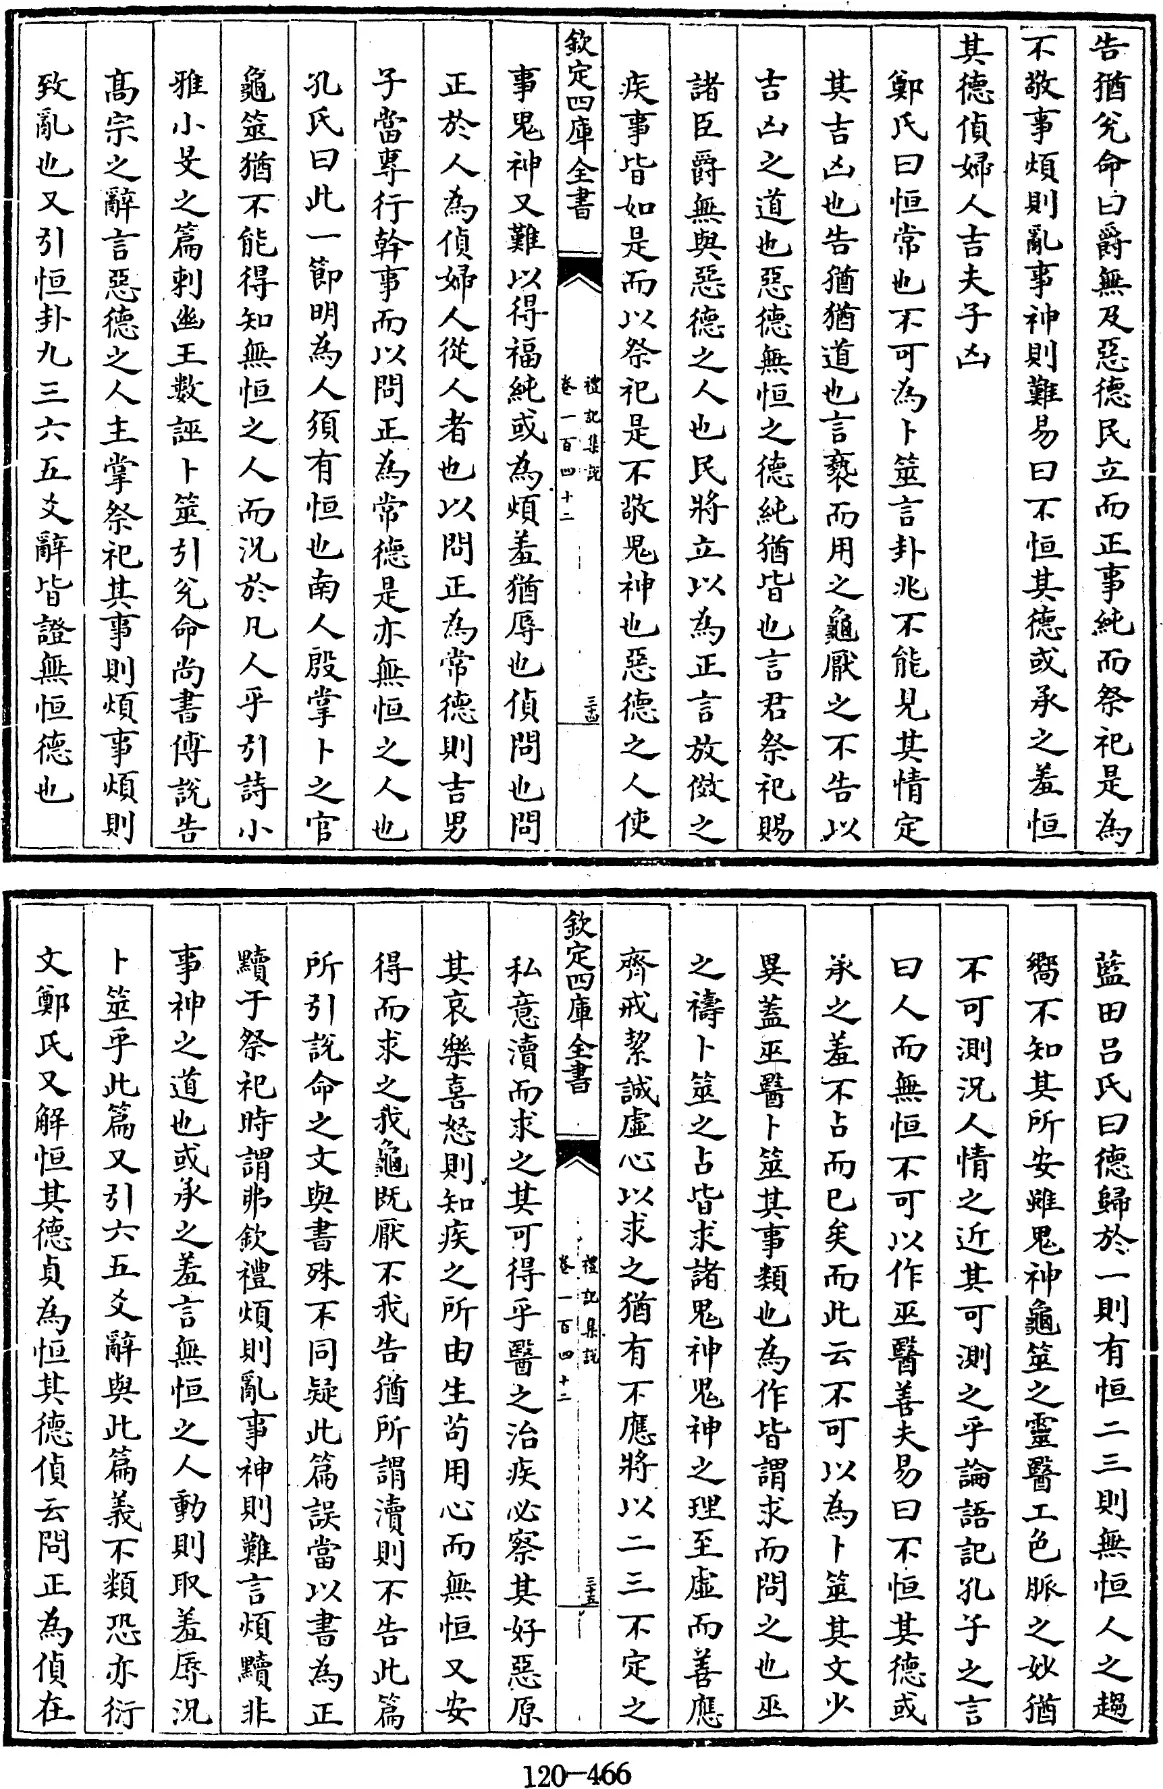 告猶兊命曰爵無及惡德民立而正事純而祭祀是為
不敬事煩則亂事神則難易曰不恒其德或承之羞恒
其德偵婦人吉夫子凶
鄭氏曰恒常也不可為卜筮言卦兆不能見其情定
其吉凶也告猶猶道也言褻而用之龜厭之不告以
吉凶之道也惡德無恒之德純猶皆也言君祭祀賜
諸臣爵無與惡德之人也民將立以為正言放傚之
疾事皆如是而以祭祀是不敬鬼神也惡德之人使
欽定四庫全書
禮記集說
卷一百四十二
三十四
事鬼神又難以得福純或為煩羞猶辱也偵問也問
正於人為偵婦人從人者也以問正為常德則吉男
子當專行幹事而以問正為常德是亦無恒之人也
孔氏曰此一節明為人須有恒也南人殷掌卜之官
龜筮猶不能得知無恒之人而況於凡人乎引詩小
雅小旻之篇刺幽王數誣卜筮引兊命尚書傅說告
高宗之辭言惡德之人主掌祭祀其事則煩事煩則
致亂也又引恒卦九三六五爻辭皆證無恒德也
藍田呂氏曰德歸於一則有恒二三則無恒人之趨
嚮不知其所安雖鬼神龜筮之靈醫工色脈之妙猶
不可測況人情之近其可測之乎論語記孔子之言
曰人而無恒不可以作巫醫善夫易曰不恒其德或
承之羞不占而已矣而此云不可以為卜筮其文少
異蓋巫醫卜筮其事類也為作皆謂求而問之也巫
之禱卜筮之占皆求諸鬼神鬼神之理至虛而善應
齊戒絜誠虛心以求之猶有不應將以二三不定之
欽定四庫全書
禮記集說
卷一百四十二
三十五
私意瀆而求之其可得乎醫之治疾必察其好惡原
其哀樂喜怒則知疾之所由生苟用心而無恒又安
得而求之我龜既厭不我告猶所謂瀆則不告此篇
所引說命之文與書殊不同疑此篇誤當以書為正
黷于祭祀時謂弗欽禮煩則亂事神則難言煩黷非
事神之道也或承之羞言無恒之人動則取羞辱況
卜筮乎此篇又引六五爻辭與此篇義不類恐亦衍
文鄭氏又解恒其德貞為恒其德偵云問正為偵在
120-466